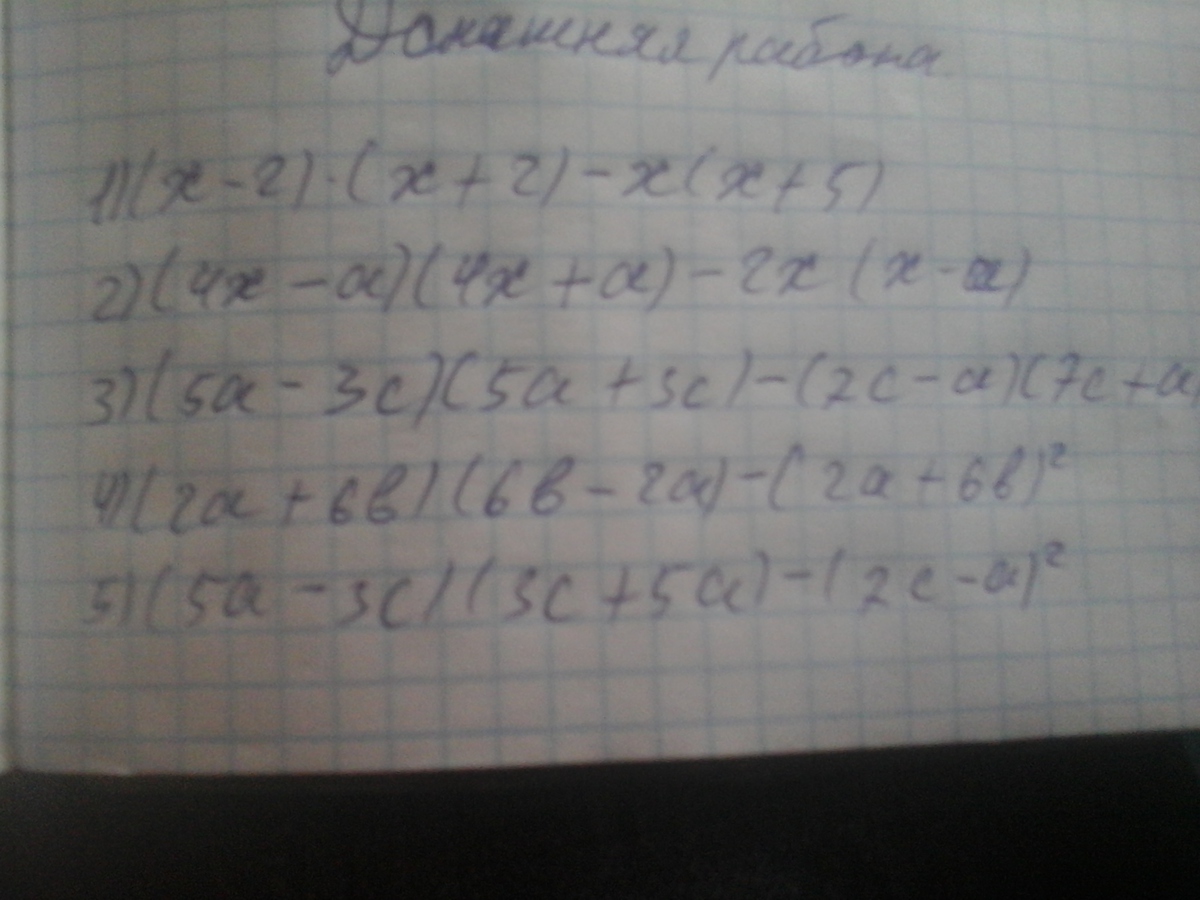 Домашняя работа.
1) (x-2)·(x+2)-x(x+5)
2) (4x-a)(4x+a)-2x(x-a)
3) (5a-3c)(5a+3c)-(2c-a)(7c+a)
4) (2a+6b)(6b-2a)-(2a+6b)²
5) (5a-3c)(3c+5a)-(2c-a)²